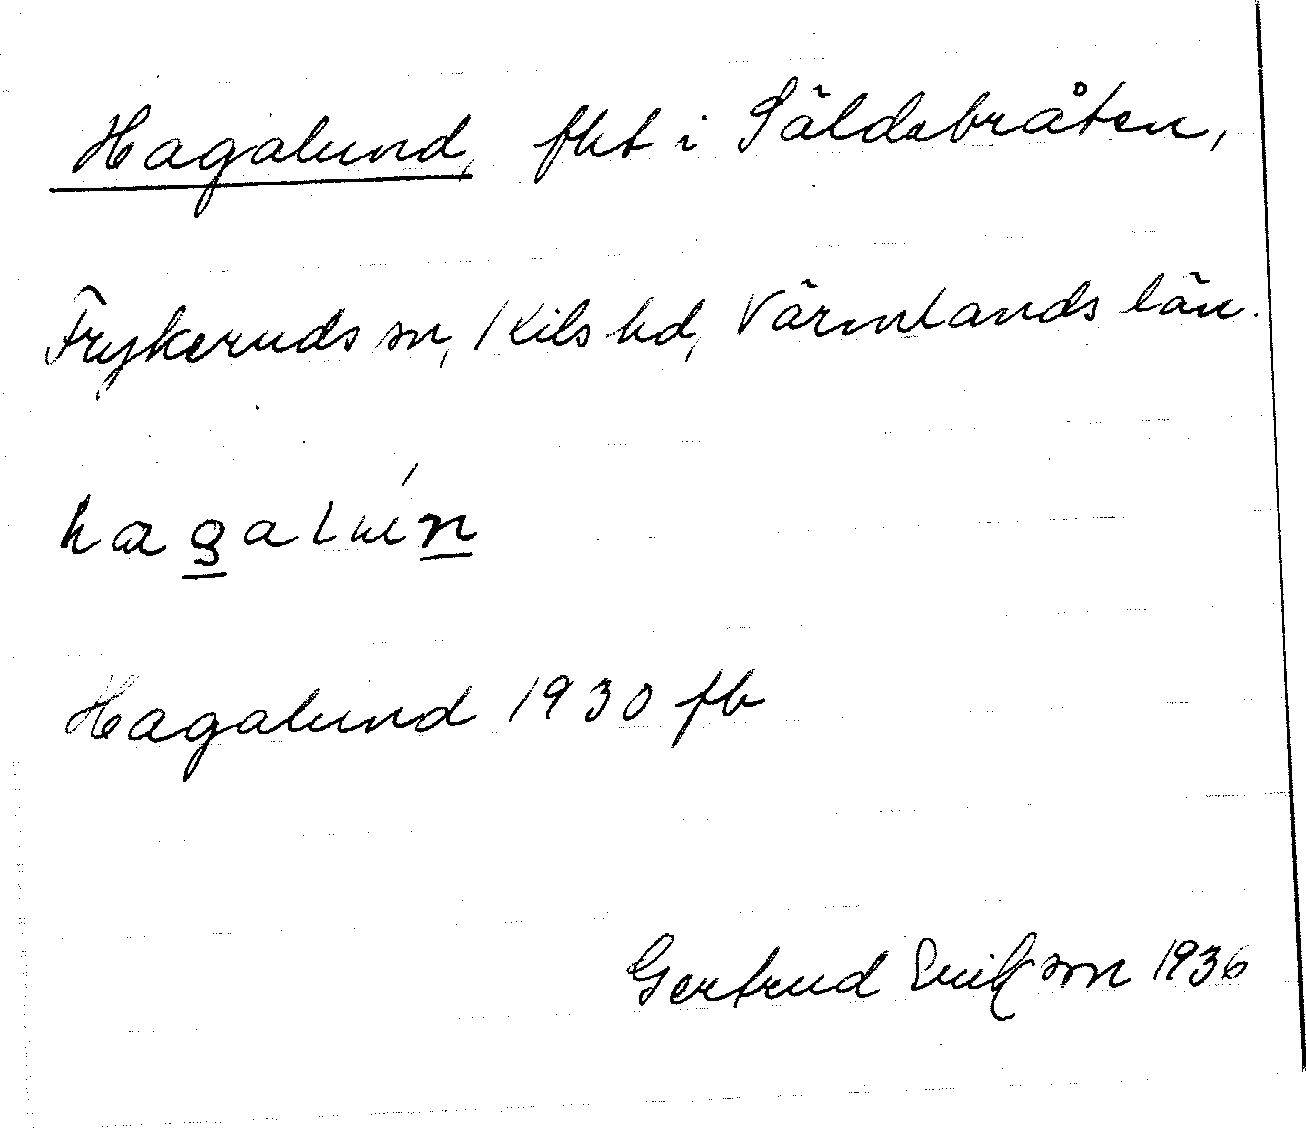 Hagalund, fht i Säldebråten,
Frykeruds sn, Kils hd, Värmlands län.
Hagalund 1930 fb
Gertrud Eriksson 1936